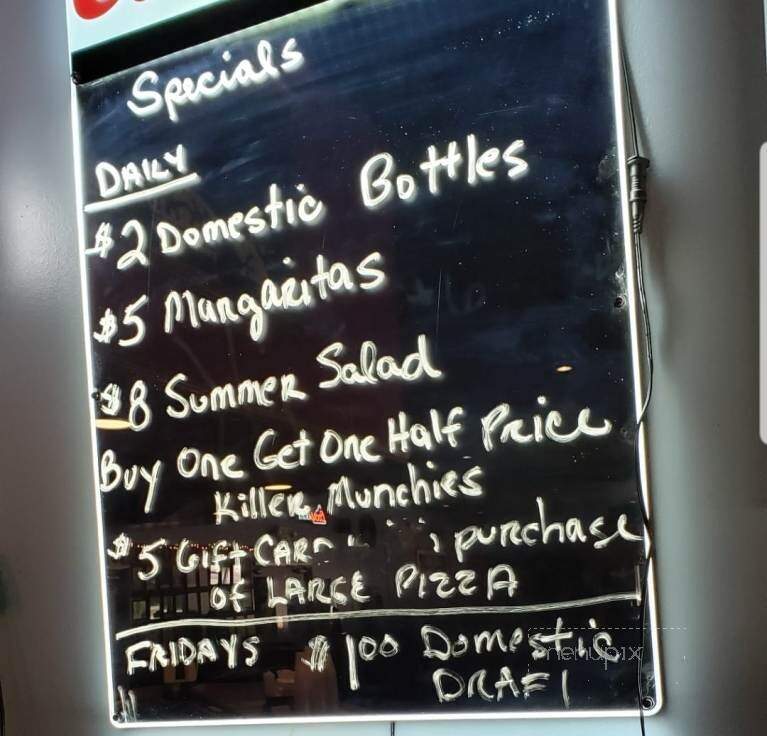 Specials
DAILY
$2 Domestic Bottles
$5 Margaritas
$8 Summer Salad
Buy One Get One Half Price
Killer Munchies
$5 Gift CARD purchase
of LARGE PIZZA
FRIDAYS $1.00 Domestic
DRAFT
menupix